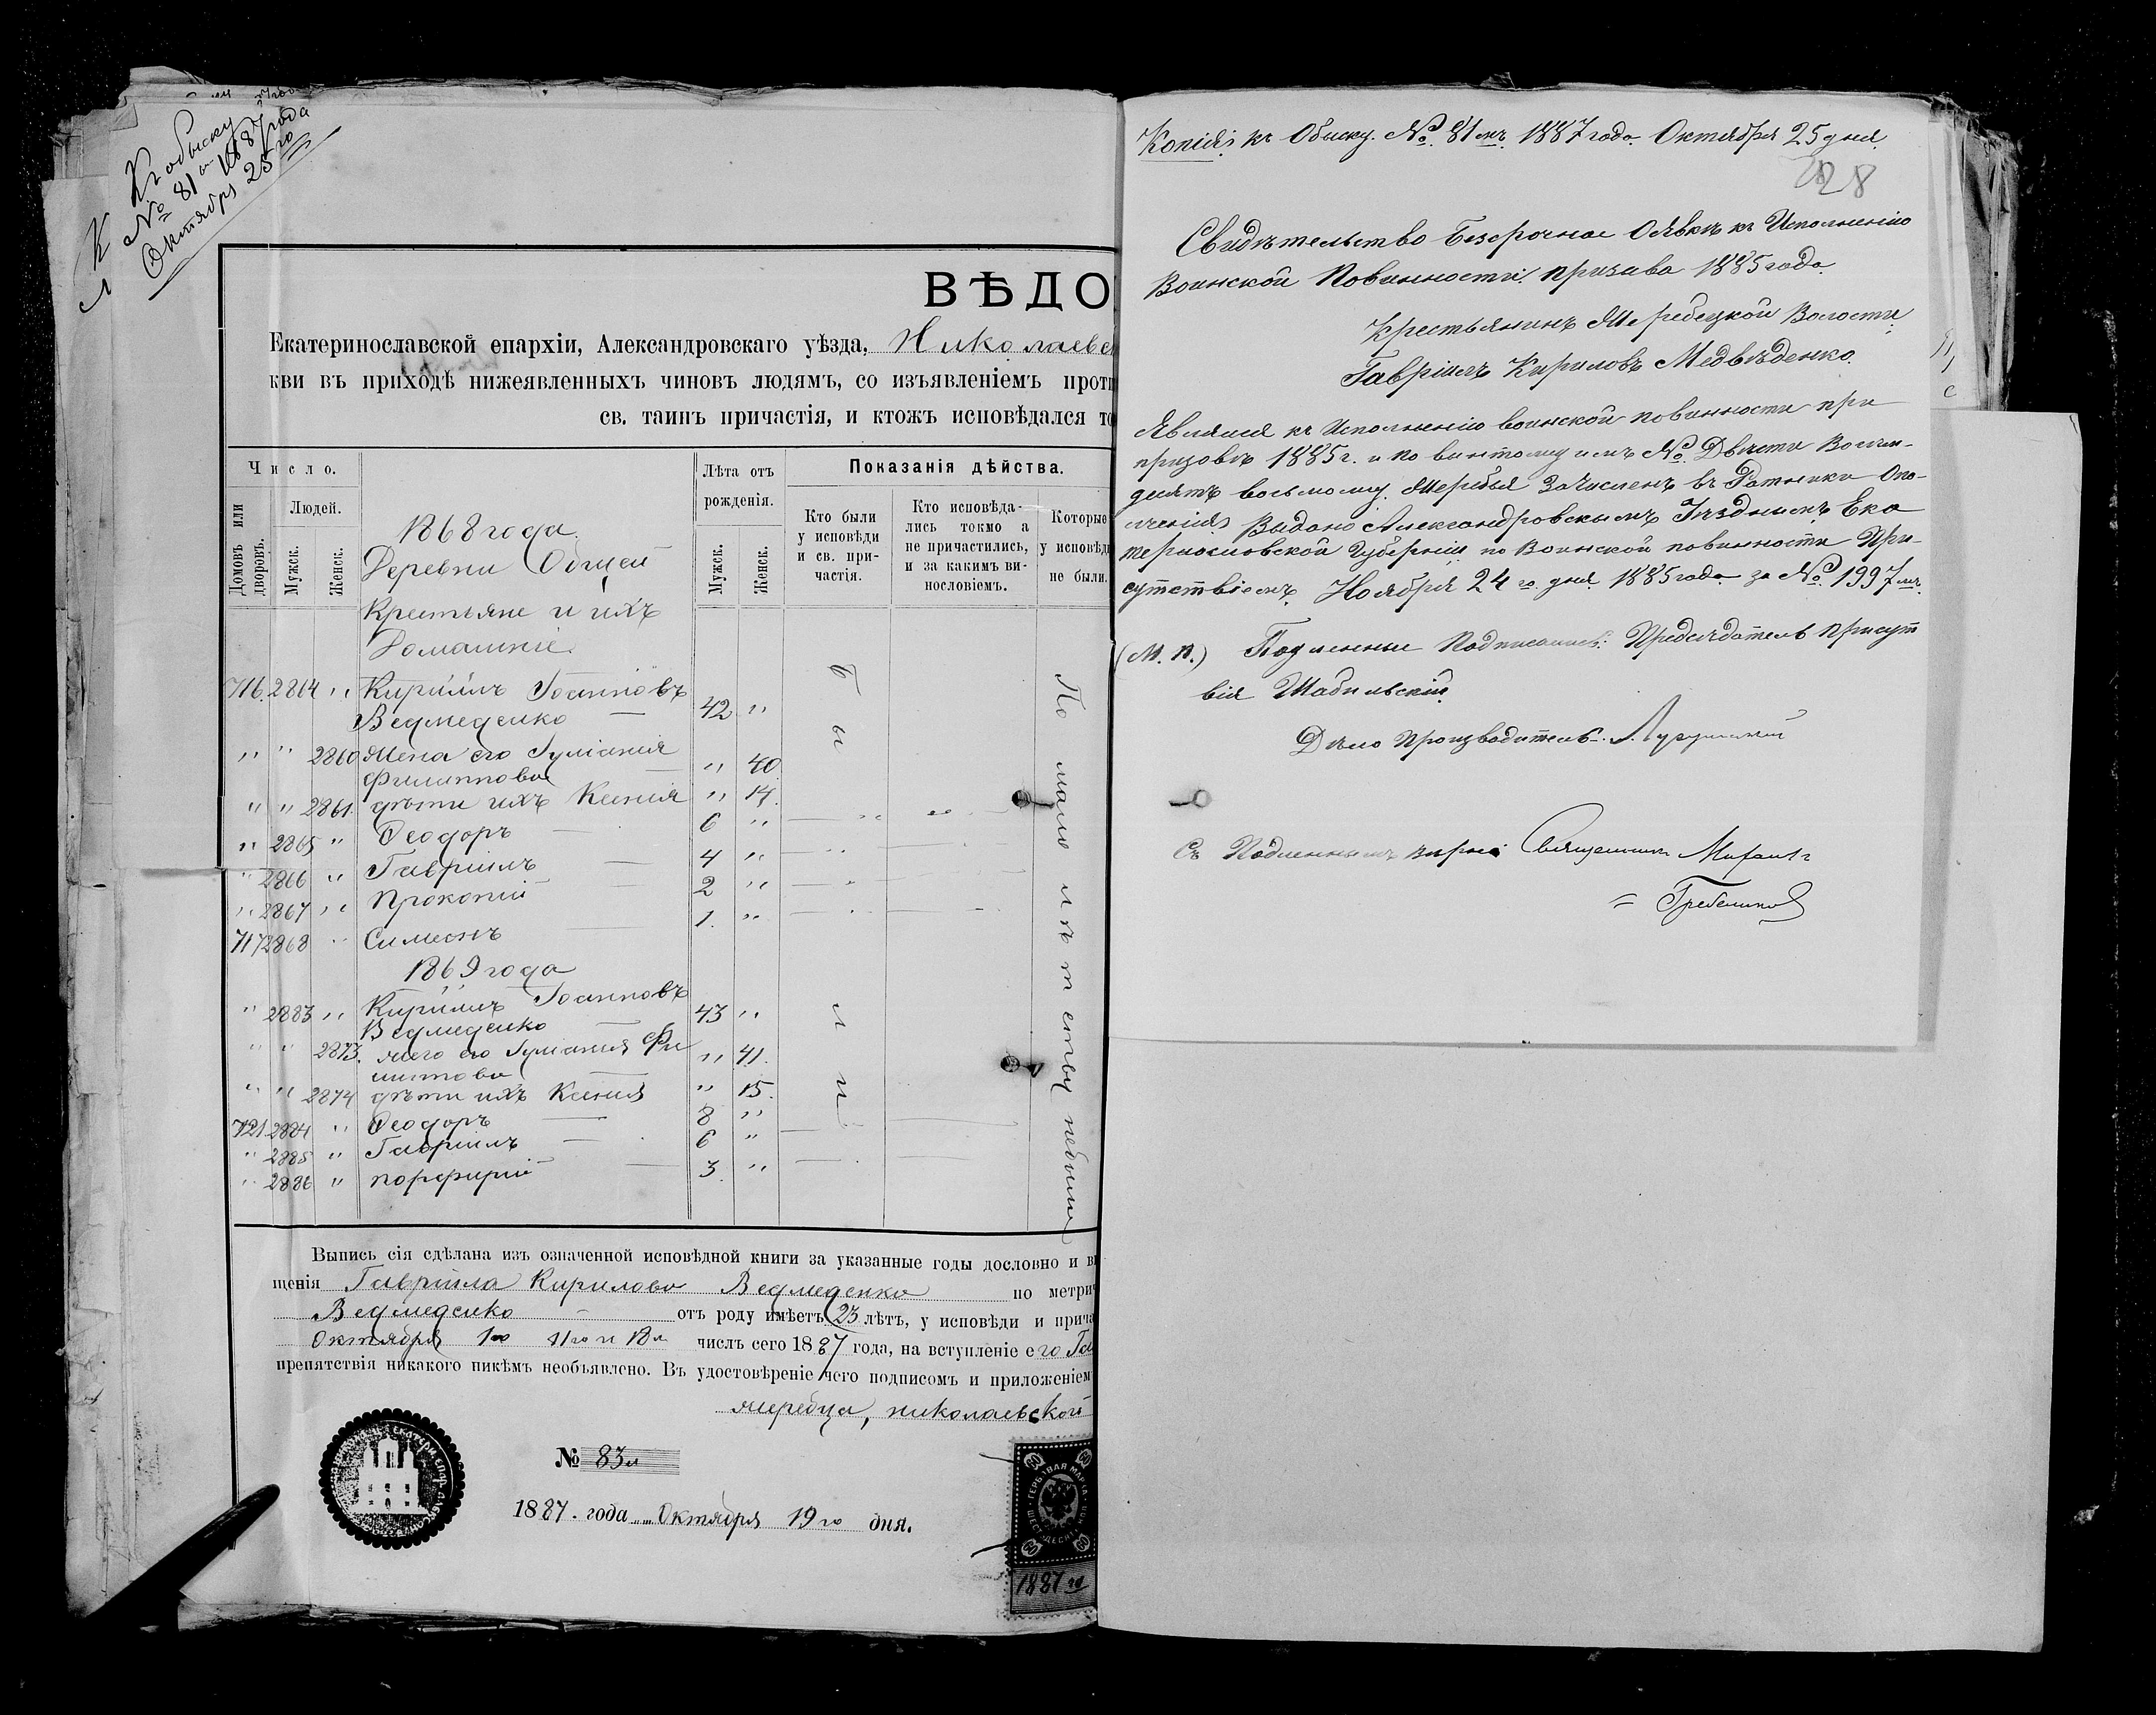 Къ обыску
№ 81й 1887 года
Октября 25го
ВѢДО
Екатеринославской епархіи, Александровскаго уѣзда, Николаевс
кви въ приходѣ нижеявленныхъ чиновъ людямъ, со изъявленіемъ проти
св. таинъ причастія, и ктожъ исповѣдался то
Число.
Домовъ или дворовъ.
Людей.
Мужск.
Женск.
Лѣта отъ рожденія.
Мужск.
Женск.
Показанія дѣйства.
Кто были у исповѣди и св. причастія.
Кто исповѣдались токмо а не причастились, и за какимъ винословіемъ.
Которые у исповѣди не были.
1868 года
Деревни Общей
Крестьяне и ихъ
Домашніе
716. 2864 " Кириллъ Іоанновъ
Ведмеденко — 42 "
" " 2860 Жена его Гуліанія
Филиппова " 40
" " 2861. дѣти ихъ Ксенія " 14.
" 2865 " Ѳеодоръ — 6 "
" 2866 " Гавріилъ — 4 "
" 2867 " Прокопій — 2 "
717 2868 " Симеонъ — 1. "
1869 года
" 2883 " Кириллъ Іоанновъ
Ведмеденко — 43 "
" " 2873. жена его Гуліанія Фи
липпова — " 41.
" " 2874 дѣти ихъ Ксенія " 15.
721 2884 " Ѳеодоръ — 8 "
" 2885 " Гавріилъ — 6 "
" 2886 " порфирій — 3 "
Были
По малолѣтству небыли
Выпись сія сдѣлана изъ означенной исповѣдной книги за указанные годы дословно и в
щенія Гавріила Кирилова Ведмеденко по метрич
Ведмеденко отъ роду имѣетъ 23 лѣтъ, у исповѣди и прича
Октября 1го 11го и 18го числъ сего 1887 года, на вступленіе его Га
препятствія никакого никѣмъ необъявлено. Въ удостовѣреніе чего подписомъ и приложеніем
жеребца, николаевской
№ 83й
1887. года Октября 19го дня.
60
ГЕРБОВАЯ МАРКА
1887 го
Копія къ Обыску. № 81мъ 1887 года Октября 25 дня.
28
Свидѣтельство Безсрочное О Явкѣ къ Исполненію
Воинской Повинности. призыва 1885 года.
Крестьянинъ Жеребецкой Волости
Гавріилъ Кириловъ Медвѣденко.
Являлся къ Исполненію воинской повинности при
призовѣ 1885 г. и по вынтому имъ № Двѣсти Восем-
десятъ восьмому Жеребья Зачисленъ въ Ратники Опо-
лченія Выдано Александровскимъ Уѣзднымъ Ека
теринославской Губерніи по Воинской повинности При-
сутствіемъ. Ноября 24го дня 1885 года за № 1997мъ.
(М. П.) Подленные Подписали: Предсѣдатель Присут
вія Шабельскій
Дѣло Производитель
Съ Подленнымъ вѣрно Священникъ Михаилъ
= Гребенников